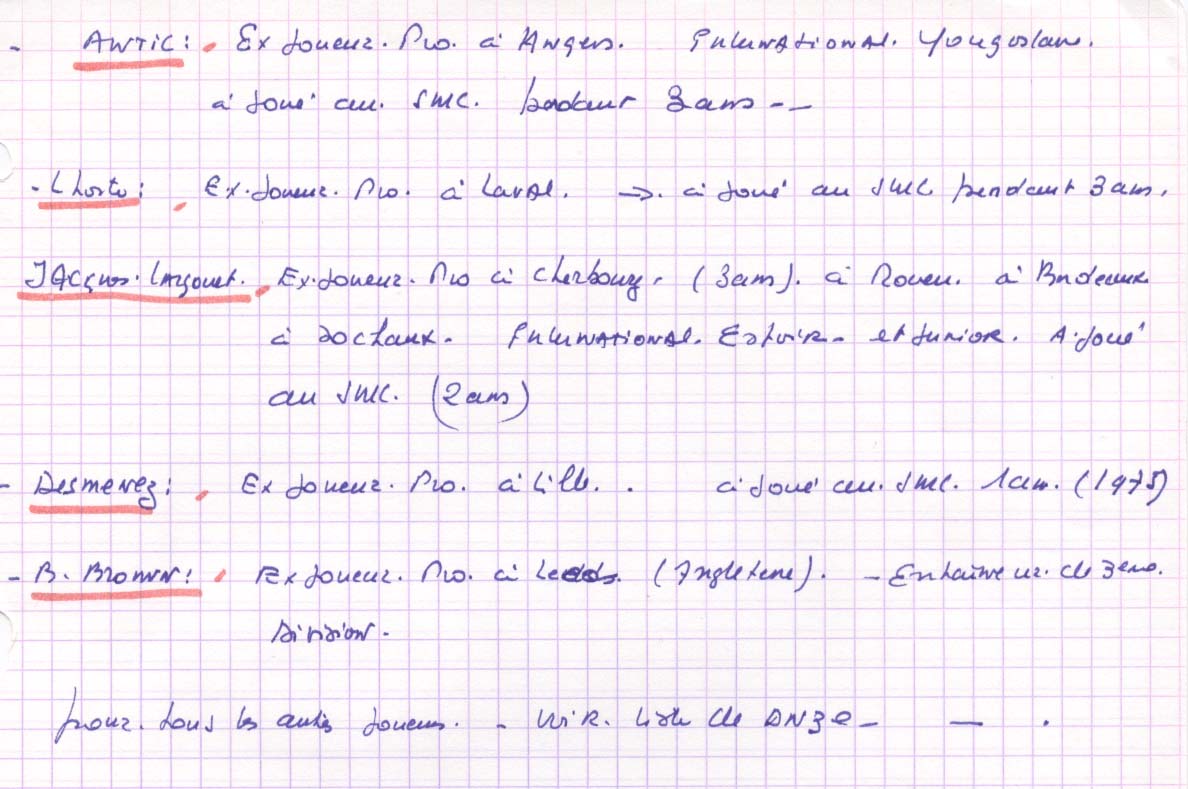 - ANTIC : Ex Joueur. Pro. à Angers. International. Yougoslave.
à joué au. SMC. pendant 3 ans --
- Lhoste : Ex. Joueur. Pro. à Laval. → à joué au SMC pendant 3 ans.
JAcques. Ex. Joueur. Pro à Cherbourg. (3 ans). à Rouen. à Bordeaux
à Sochaux. International. Espoir - et Junior. A joué
au SMC. (2 ans)
- Desmenez : Ex Joueur. Pro. à Lille. . à joué au. SMC. 1 an. (1975)
- B. Brown : Ex Joueur. Pro. à Leeds. (Angleterre). - Entraineur. de 3eme.
Division.
pour. tous les autres Joueurs. - voir. liste de DN3 - — .